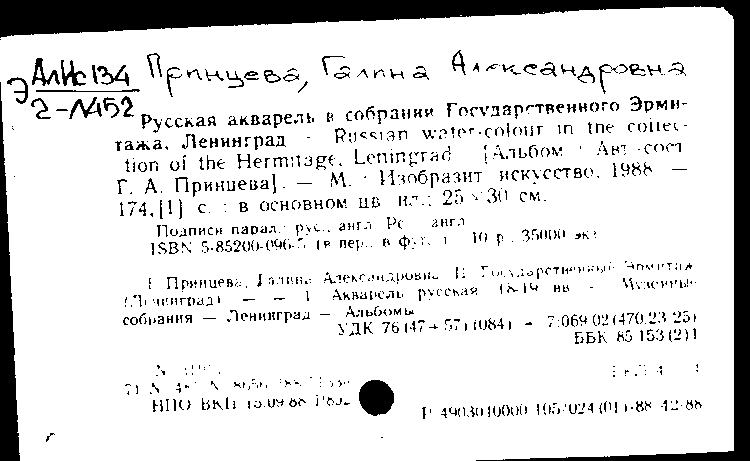 Э АлНс134 Принцева, Галина Александровна
2-Л452
Русская акварель в собрании Государственного Эрми-
тажа, Ленинград = Russian water-colour in the collec-
tion of the Hermitage, Leningrad : [Альбом : Авт.-сост.
Г. А. Принцева]. — М. : Изобразит. искусство, 1988. —
174,[1] с. : в основном цв. ил.; 25×30 см.
Подписи парал.: рус., англ. Рез. англ.
ISBN 5-85200-096-5 (в пер., в фут.): 10 р., 35000 экз.
I. Принцева, Галина Александровна. II. Государственный Эрмитаж
(Ленинград). — — 1. Акварель русская 18-19 вв. - Музейные
собрания — Ленинград — Альбомы
УДК 76(47+57)(084) + 7.069.02(470.23-25)
ББК 85.153(2)1
71 N
НПО ВКП 15.09.88
Р 4903010000-105/024(01)-88 42-88